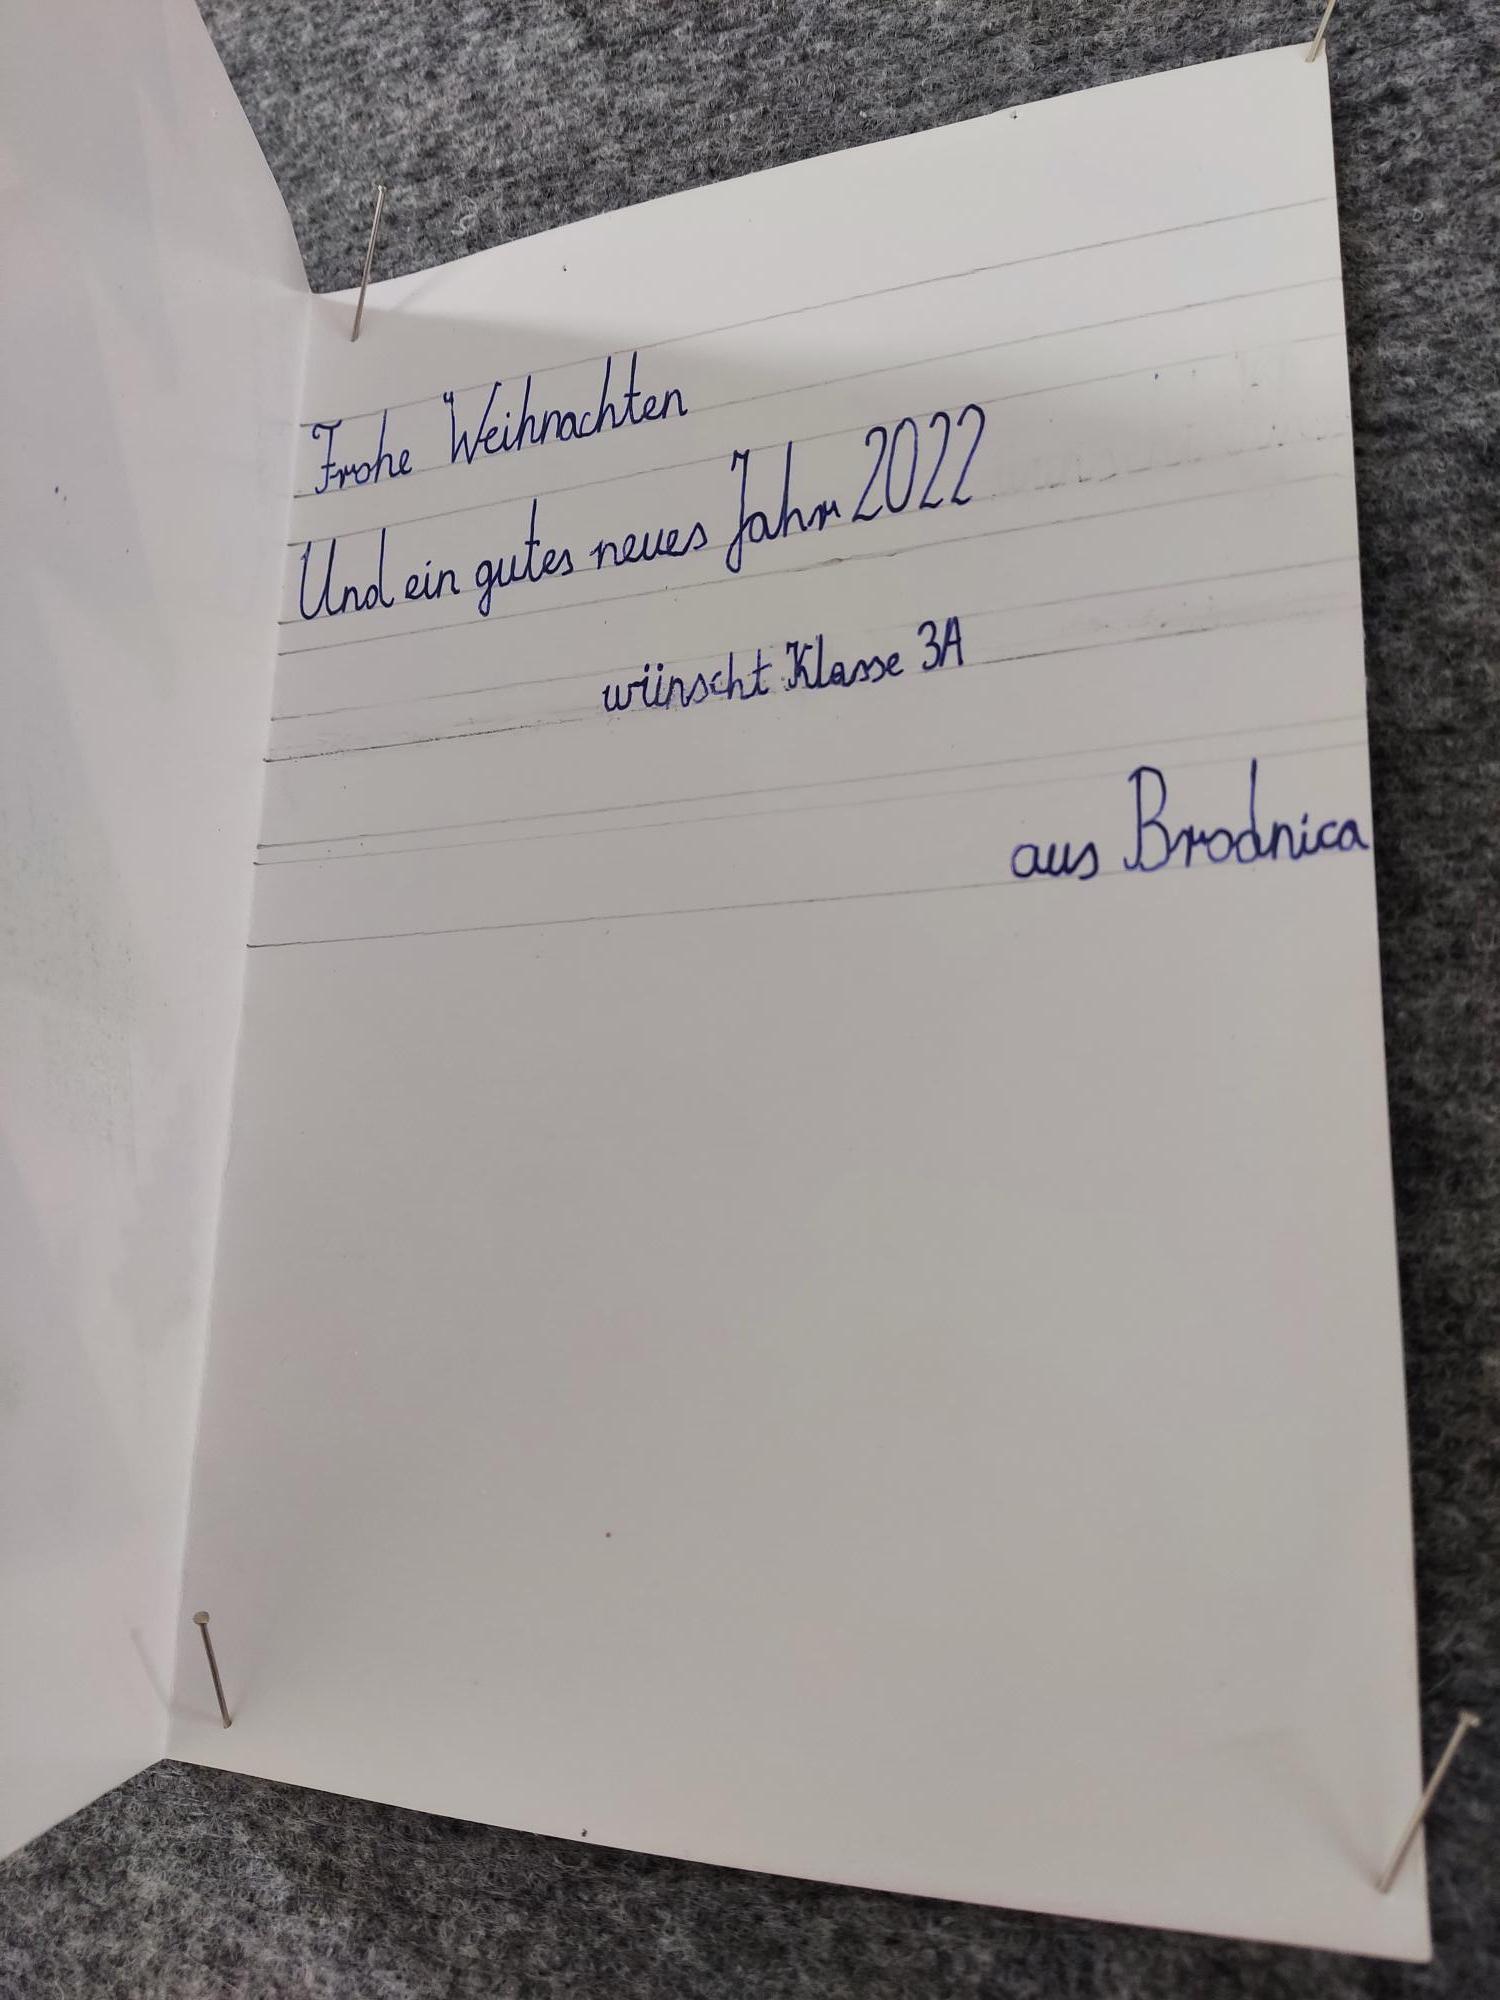 Frohe Weihnachten
Und ein gutes neues Jahr 2022
wünscht Klasse 3A
aus Brodnica